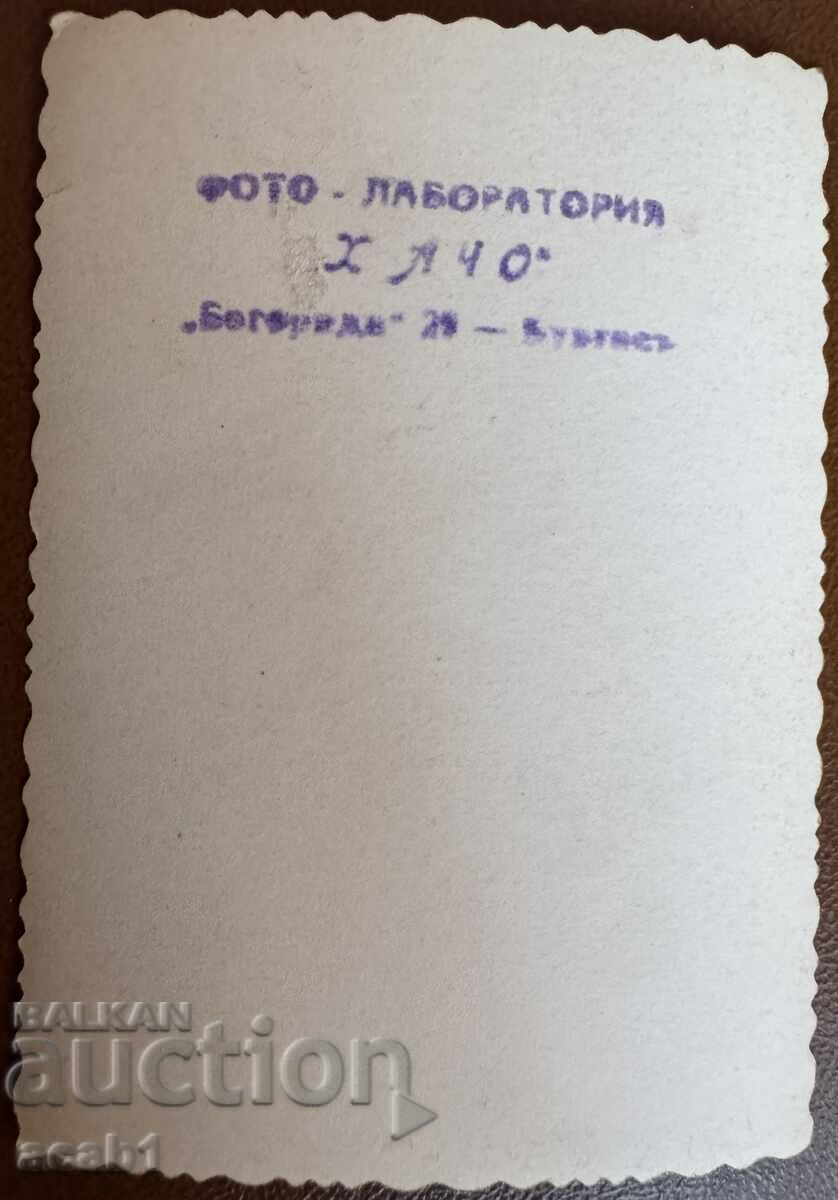 ФОТО - ЛАБОРАТОРИЯ
ХАЧО"
„Богориди" 29 — Бургасъ
BALKAN
auction
acab1